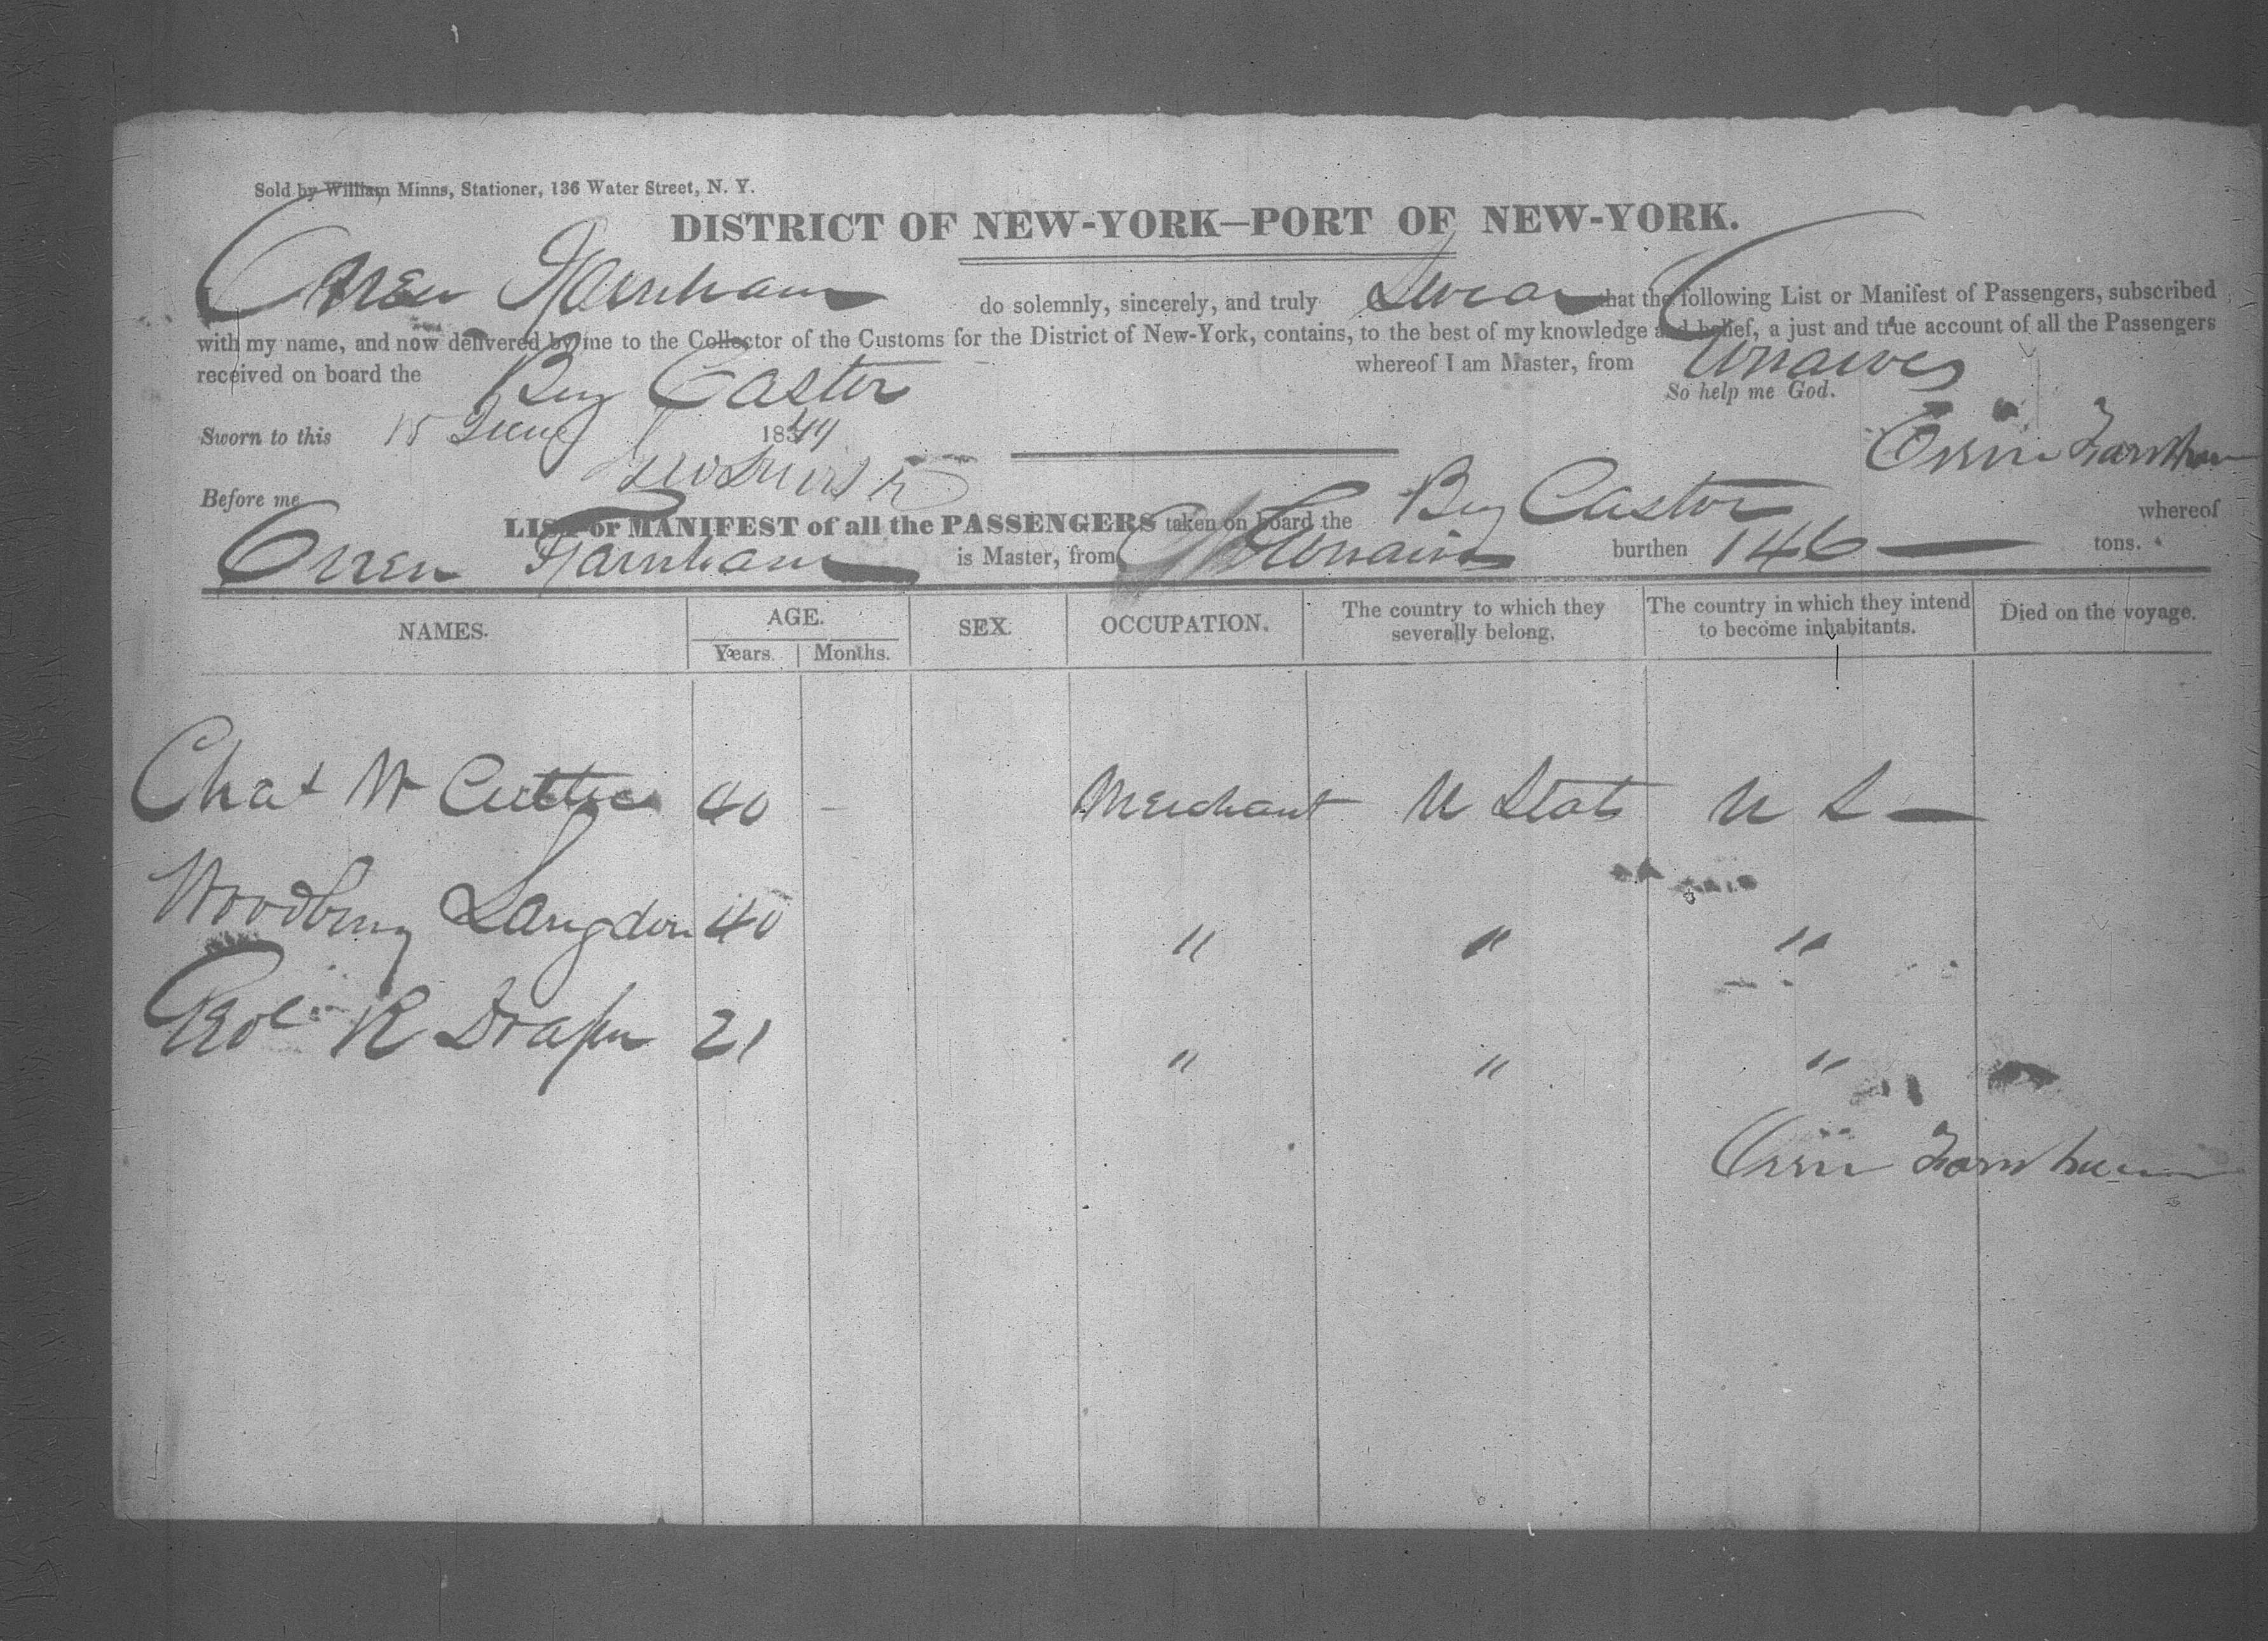 Sold by William Minns, Stationer, 136 Water Street, N. Y.
DISTRICT OF NEW-YORK—PORT OF NEW-YORK.
Orren Farnham do solemnly, sincerely, and truly Swear that the following List or Manifest of Passengers, subscribed
with my name, and now delivered by me to the Collector of the Customs for the District of New-York, contains, to the best of my knowledge and belief, a just and true account of all the Passengers
received on board the Brig Castor whereof I am Master, from
So help me God.
Sworn to this 15 June 1844
Orren Farnham
Before me
LIST or MANIFEST of all the PASSENGERS taken on board the Brig Castor whereof
Orren Farnham is Master, from burthen 146 — tons.
NAMES. AGE. SEX. OCCUPATION. The country to which they severally belong. The country in which they intend to become inhabitants. Died on the voyage.
Years. Months.
Chas W 40 - Merchant U Stats U S —
Woodbury Langdon 40 " " "
R Draper 21 " " "
Orren Farnham